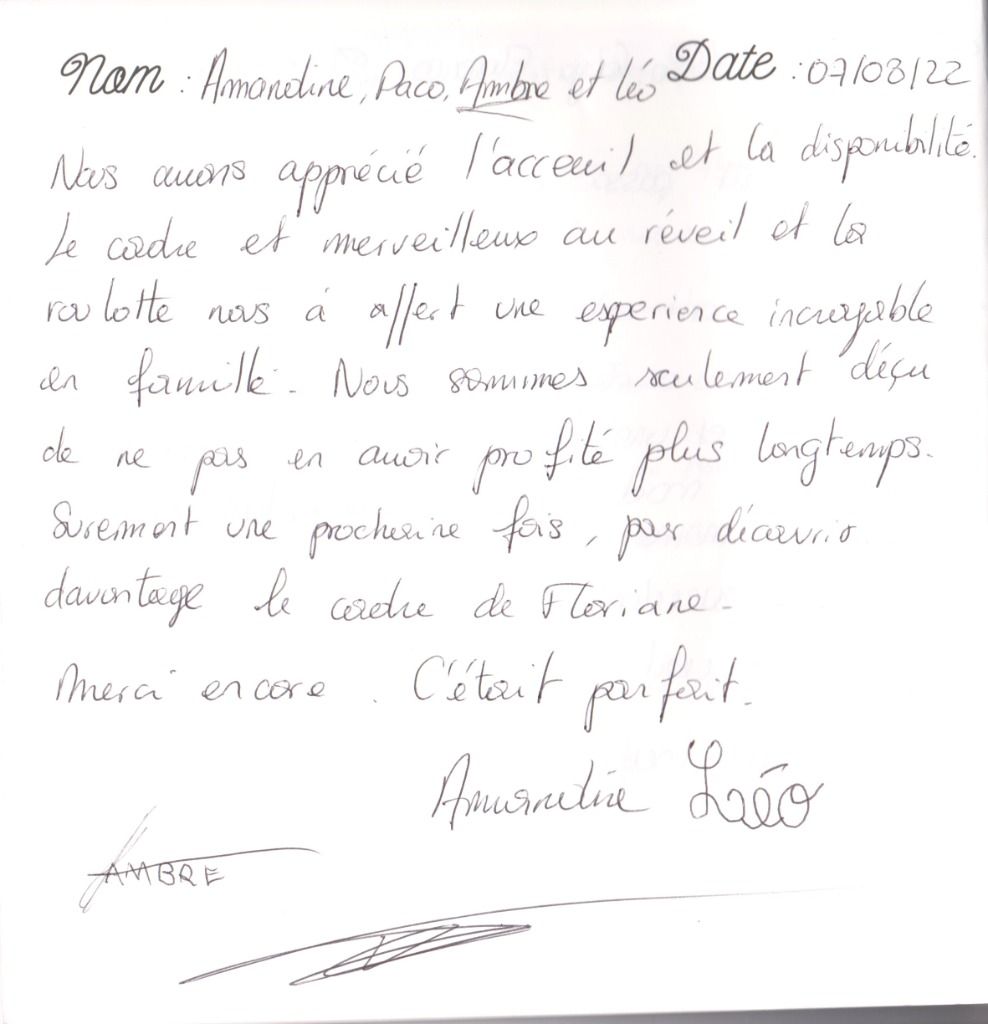 Nom : Amandine, Paco, Ambre et Léo Date : 07/08/22
Nous avons apprécié l'acceuil et la disponibilité.
Le cadre et merveilleux au réveil et la
roulotte nous à affert une experience incroyable
en famille. Nous sommes seulement déçu
de ne pas en avoir profité plus longtemps.
Surement une prochaine fois, par découvrir
davantage le cadre de Floriane.
Merci encore. C'était parfait.
Amandine Léo
AMBRE